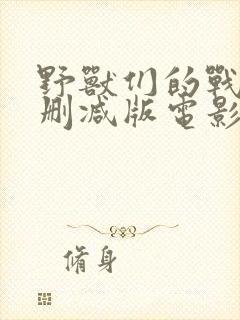 野獸们的戰
删减版電影
脩身